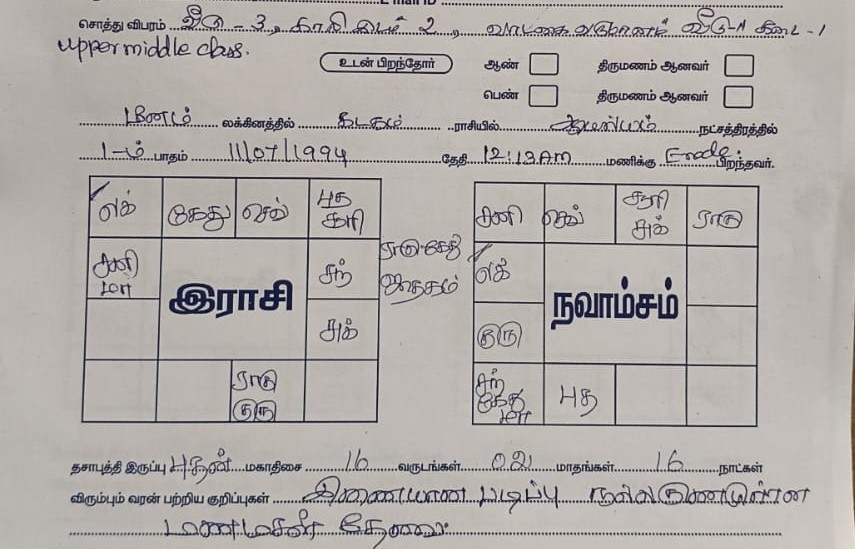 E mail ID
சொத்து விபரம் வீடு - 3, காலி இடம் 2, வாடகை வருமானம் வீடு-4 கடை -1
upper middle class.
உடன் பிறந்தோர் ஆண் திருமணம் ஆனவர்
பெண் திருமணம் ஆனவர்
மீனம் லக்கினத்தில் கடகம் ராசியில் ஆயில்யம் நட்சத்திரத்தில்
1-ம் பாதம் 11/07/1994 தேதி 12:13AM மணிக்கு Erode. பிறந்தவர்.
லக் கேது செவ் புத சூரி
சனி மா சந் சுக் ராகு குரு
இராசி
ராகு கேது ஜாதகம்
சனி செவ் சூரி சுக் ராகு
லக் குரு சந் கேது மா புத
நவாம்சம்
தசாபுத்தி இருப்பு புதன் மகாதிசை 16 வருடங்கள் 02 மாதங்கள் 16 நாட்கள்
விரும்பும் வரன் பற்றிய குறிப்புகள் இணையான படிப்பு நல்லகுணமுள்ள
மணமகன் தேவை.